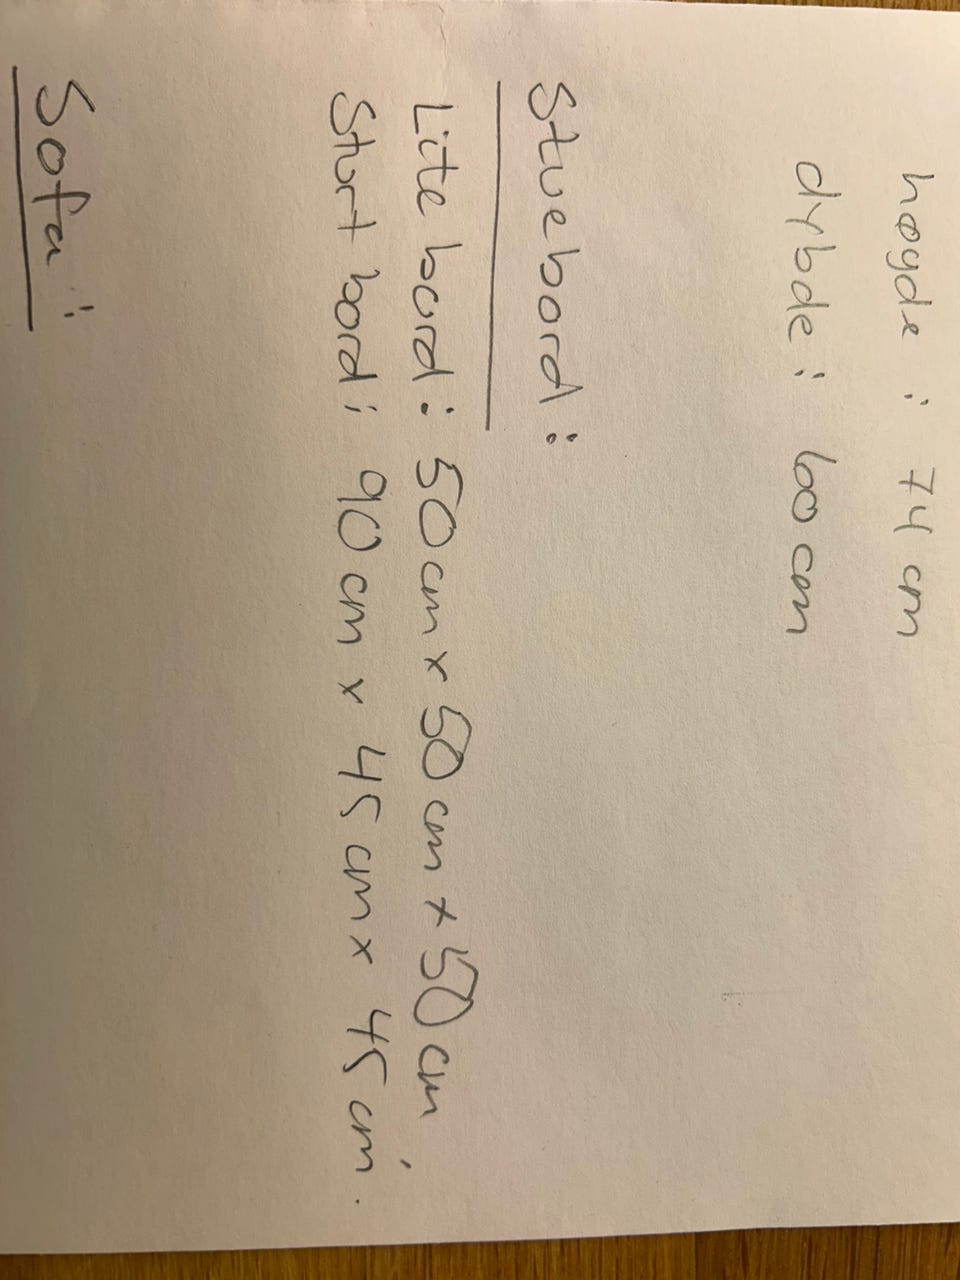 høyde : 74 cm
dybde : 60 cm
Stuebord :
Lite bord : 50 cm x 50 cm x 50 cm
Stort bord : 90 cm x 45 cm x 45 cm.
Sofa :